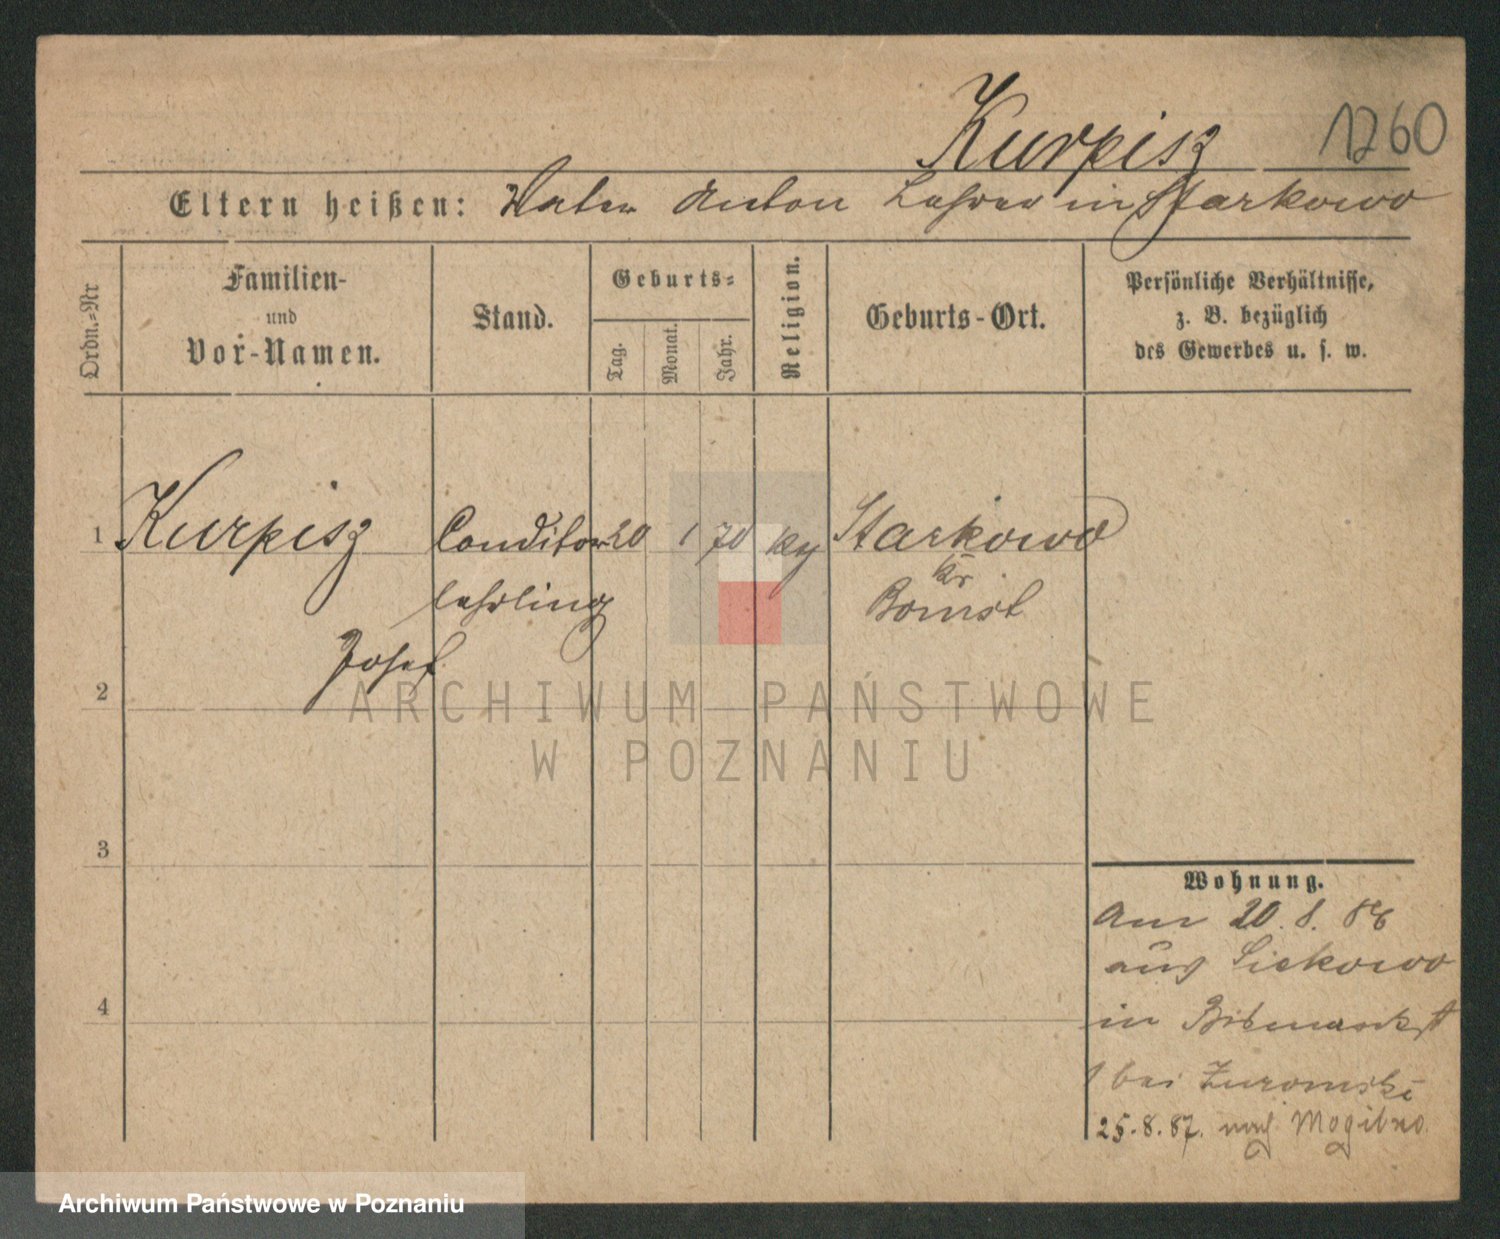 Kurpisz
1260
Eltern heißen: Vater Anton Lehrer in Starkowo
Ordn.-Nr
Familien-
und
Vor-Namen.
Stand.
Geburts-
Tag.
Monat.
Jahr.
Religion.
Geburts-Ort.
Persönliche Verhältnisse,
z. B. bezüglich
des Gewerbes u. s. w.
1 Kurpisz Conditor 20 1 70 Starkowo
Kr
lehrling Bomst
Josef
2
3
4
Wohnung.
20. 8. 86
aus Siekowo
in Bismarckst
1 bei Zuromski
25. 8. 87. nach Mogilno
ARCHIWUM PAŃSTWOWE
W POZNANIU
Archiwum Państwowe w Poznaniu